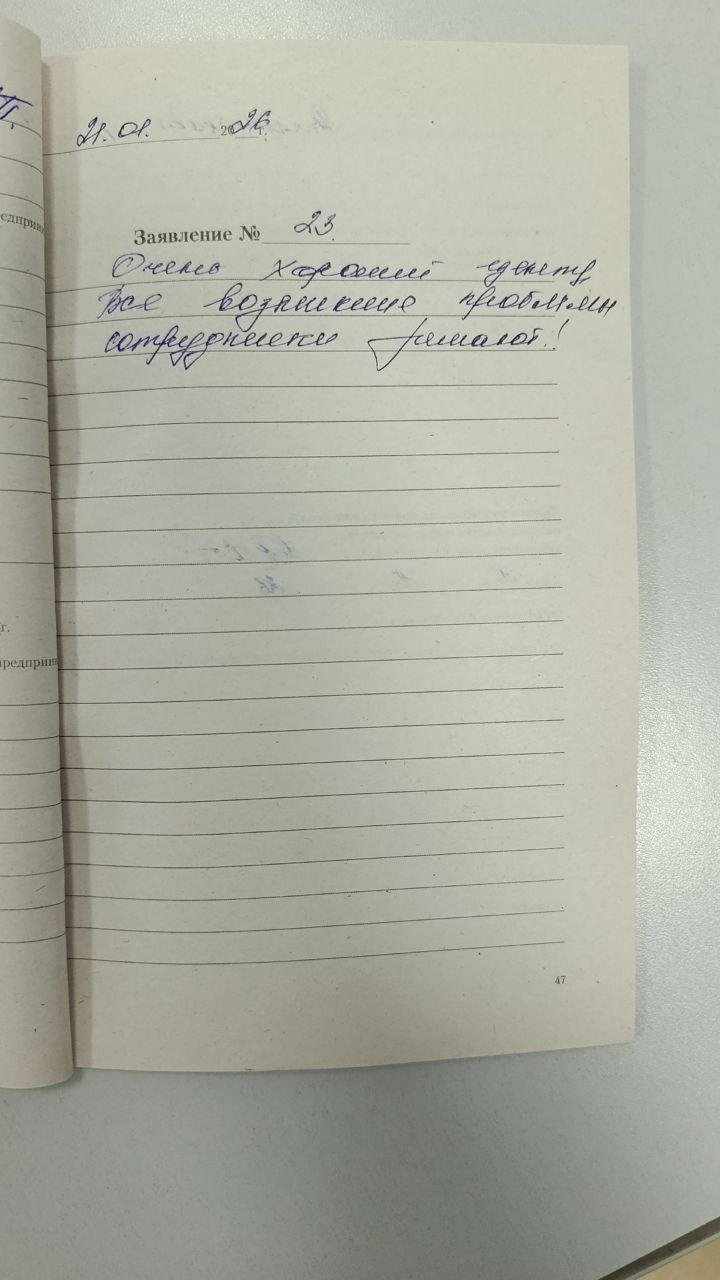 21.01. 2026 г.
Заявление № 23.
Очень хороший центр,
Все возникшие проблемы
сотрудники решают!
г.
47